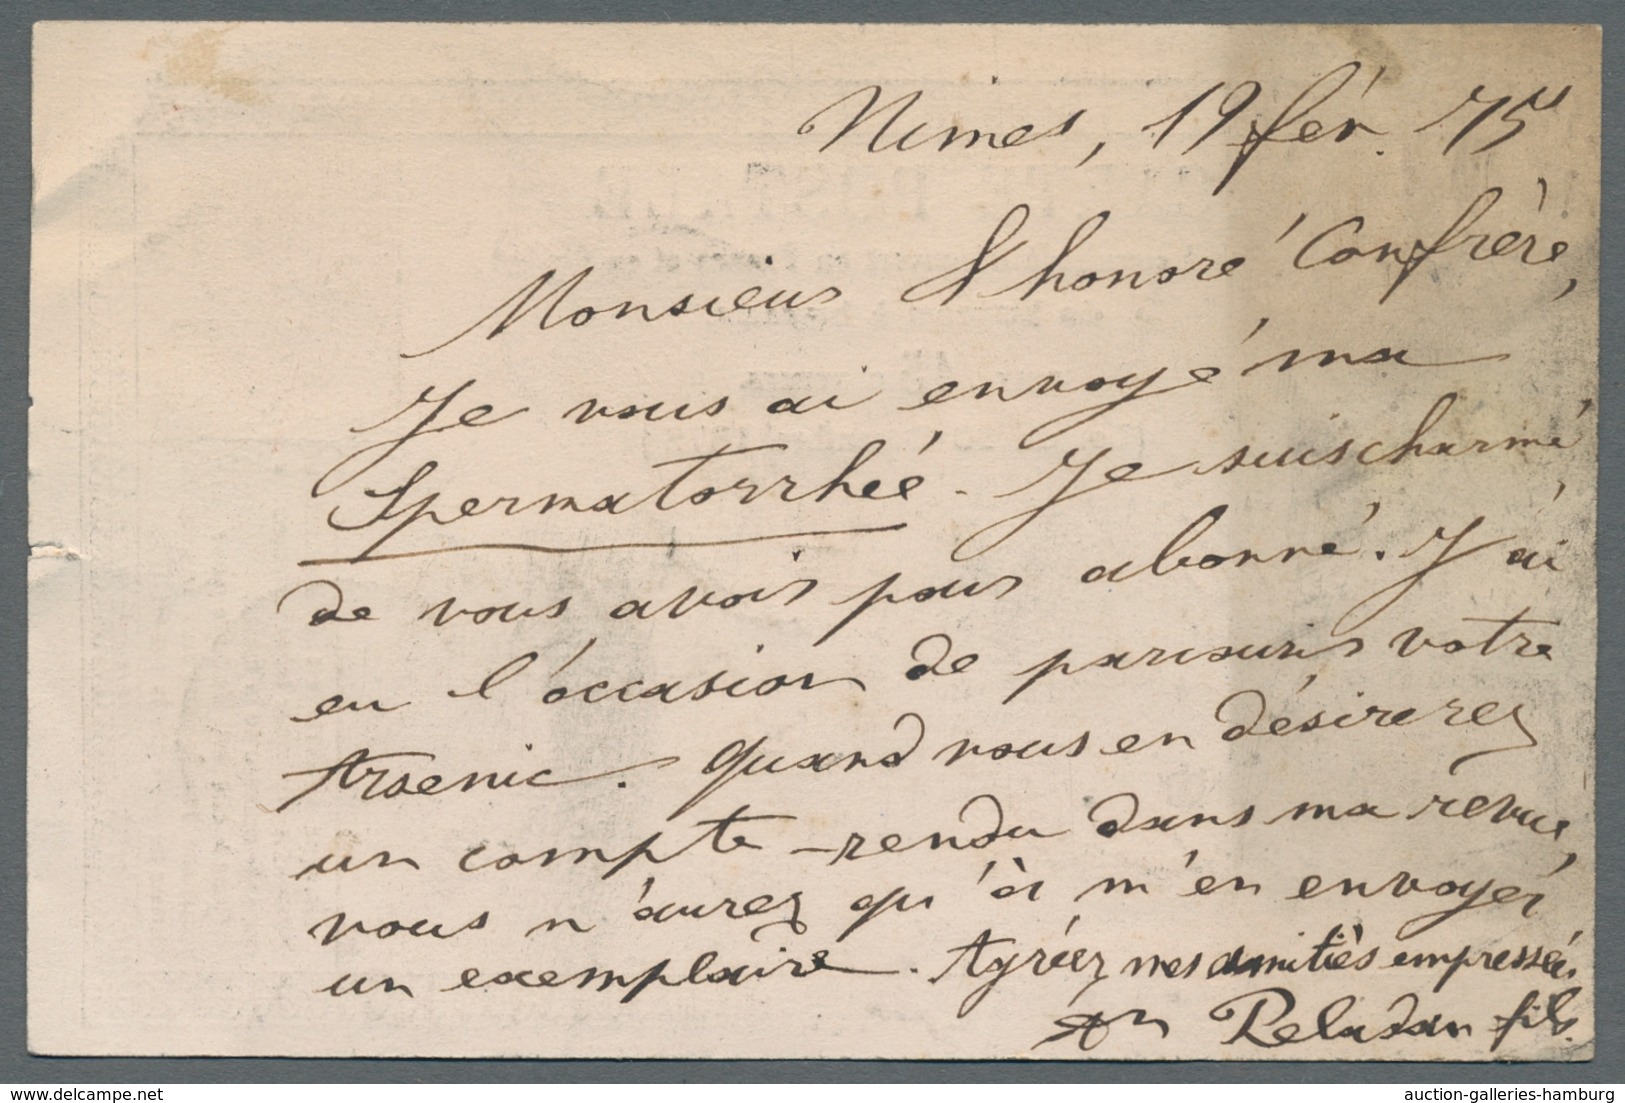 Nimes, 19 fév. 75
Monsieur & honoré Confrère,
Je vous ai envoyé ma
Spermatorrhée. Je suis charmé,
de vous avoir pour abonné. J'ai
eu l'occasion de parcourir votre
Arsenic. Quand vous en désirerez
un compte-rendu dans ma revue,
vous n'aurez qu'à m'en envoyer
un exemplaire. Agréez mes amitiès empressées
An Peladan fils.
auction-galleries-hamburg